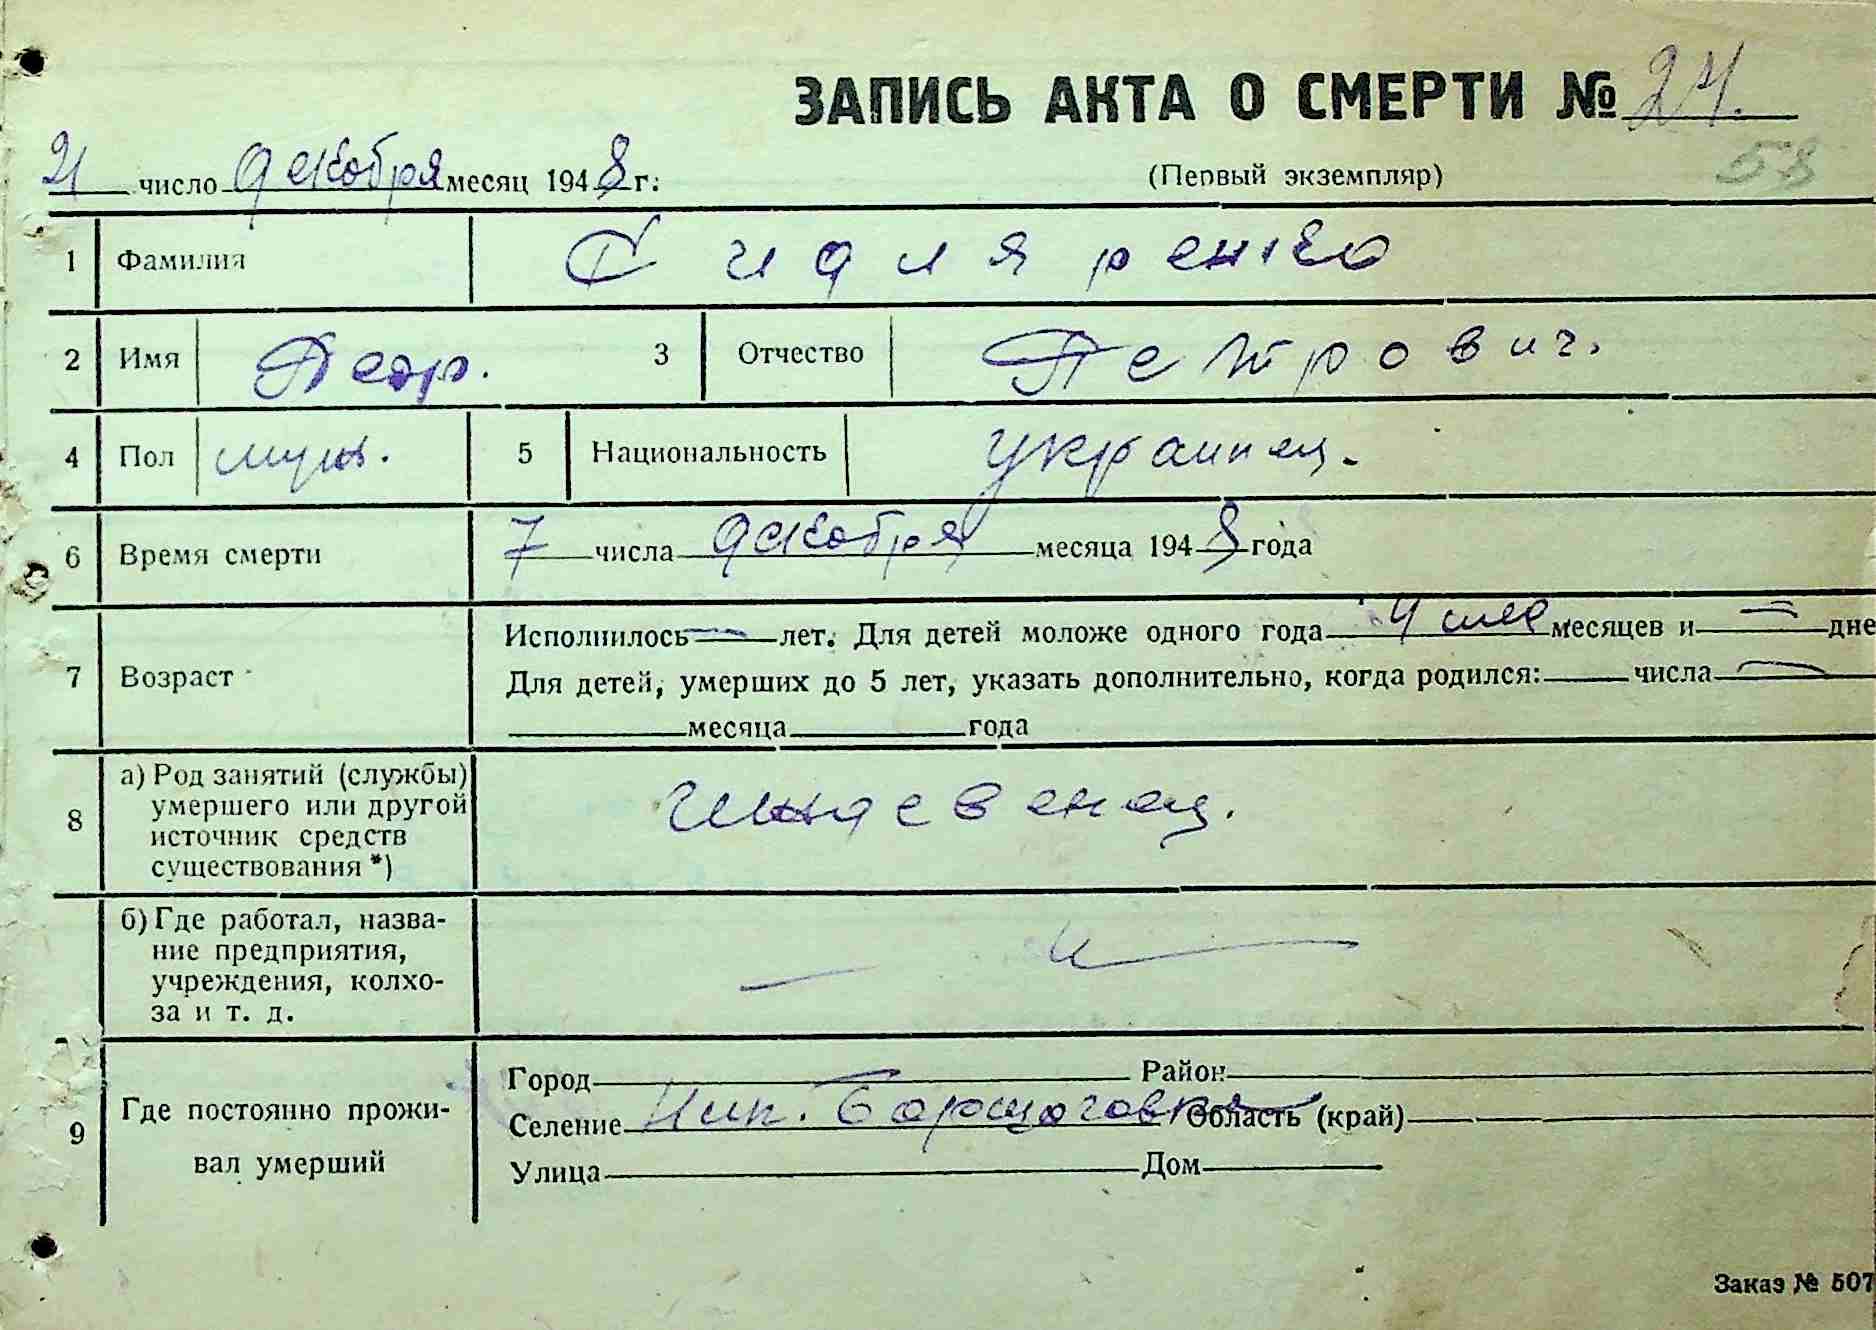 ЗАПИСЬ АКТА О СМЕРТИ № 24.
21 число декабря месяц 1948 г.
(Первый экземпляр)
58
1 Фамилия Сидляренко
2 Имя Петр. 3 Отчество Петрович.
4 Пол муж. 5 Национальность украинец.
6 Время смерти 7 числа декабря месяца 1948 года
7 Возраст
Исполнилось — лет. Для детей моложе одного года 4 мес месяцев и — дне
Для детей, умерших до 5 лет, указать дополнительно, когда родился: числа —
месяца года
8 а) Род занятий (службы)
умершего или другой
источник средств
существования *)
иждевенец.
б) Где работал, назва-
ние предприятия,
учреждения, колхо-
за и т. д.
9 Где постоянно прожи-
вал умерший
Город Район
Селение Борщаговка Область (край)
Улица Дом
Заказ № 507